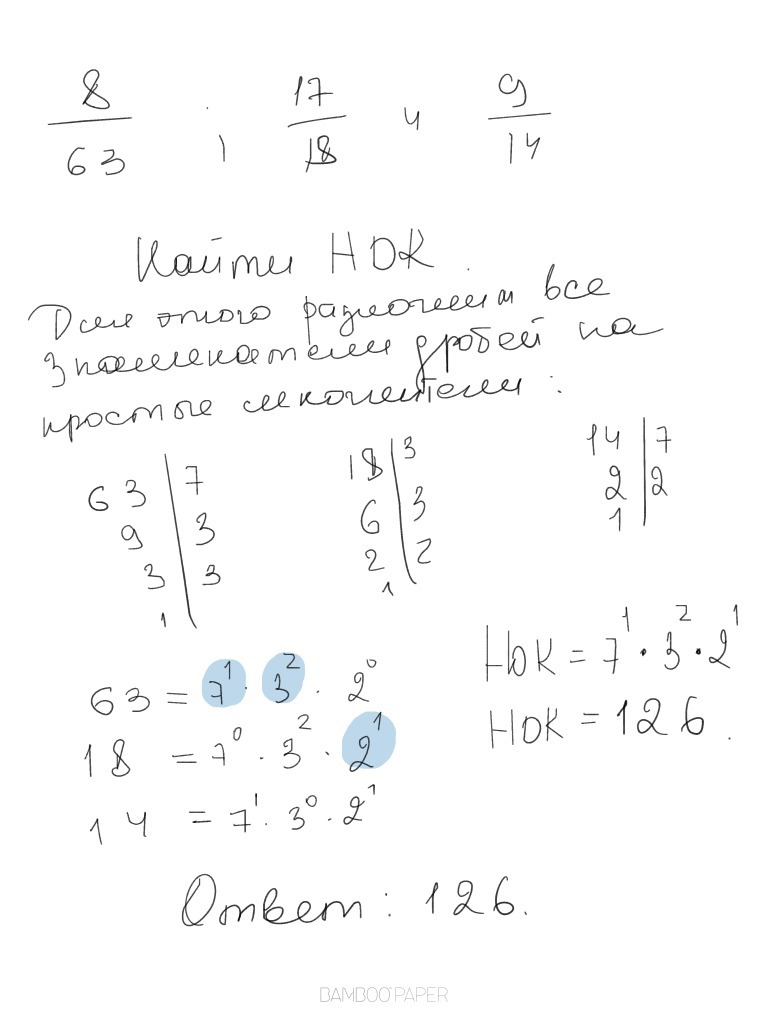 8/63 , 17/18 и 9/14
Найти НОК.
Для этого разложим все
знаменатели дробей на
простые множители:
63 | 7
9 | 3
3 | 3
1
18 | 3
6 | 3
2 | 2
1
14 | 7
2 | 2
1
63 = 7¹ · 3² · 2⁰
18 = 7⁰ · 3² · 2¹
14 = 7¹ · 3⁰ · 2¹
НОК = 7¹ · 3² · 2¹
НОК = 126.
Ответ: 126.
BAMBOO PAPER